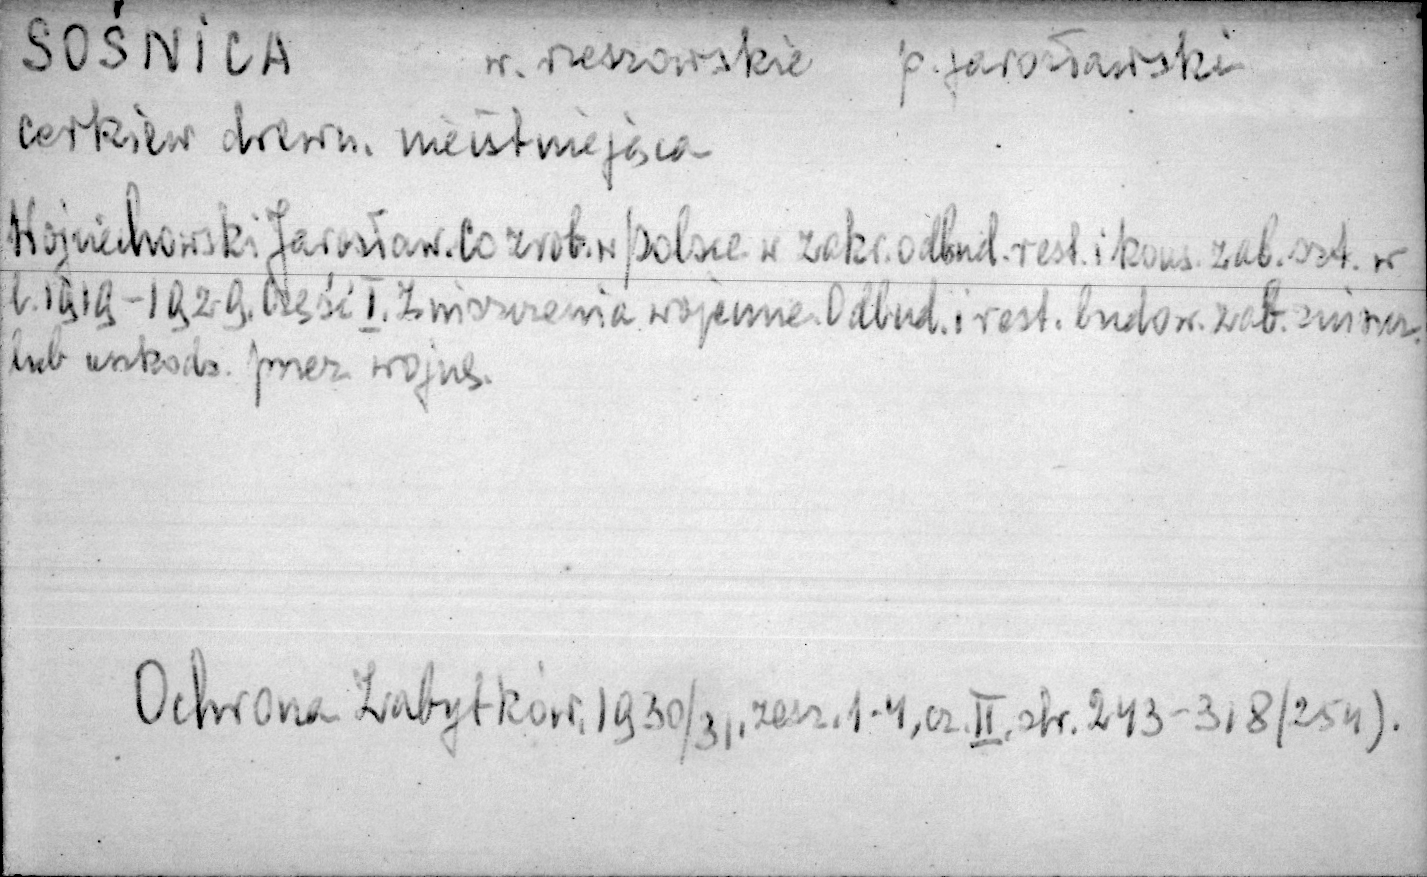 SOŚNICA w. rzeszowskie p. jarosławski
cerkiew drewn. nieistniejąca
Wojciechowski Jarosław. Co zrob. w Polsce w zakr. odbud. rest. i kons. zab. szt. w
l. 1919-1929. Część I. Zniszczenia wojenne. Odbud. i rest. budow. zab. zniszcz.
lub uszkodz. przez wojnę.
Ochrona Zabytków, 1930/31, zesz. 1-4, cz. II, str. 243-318 (254).